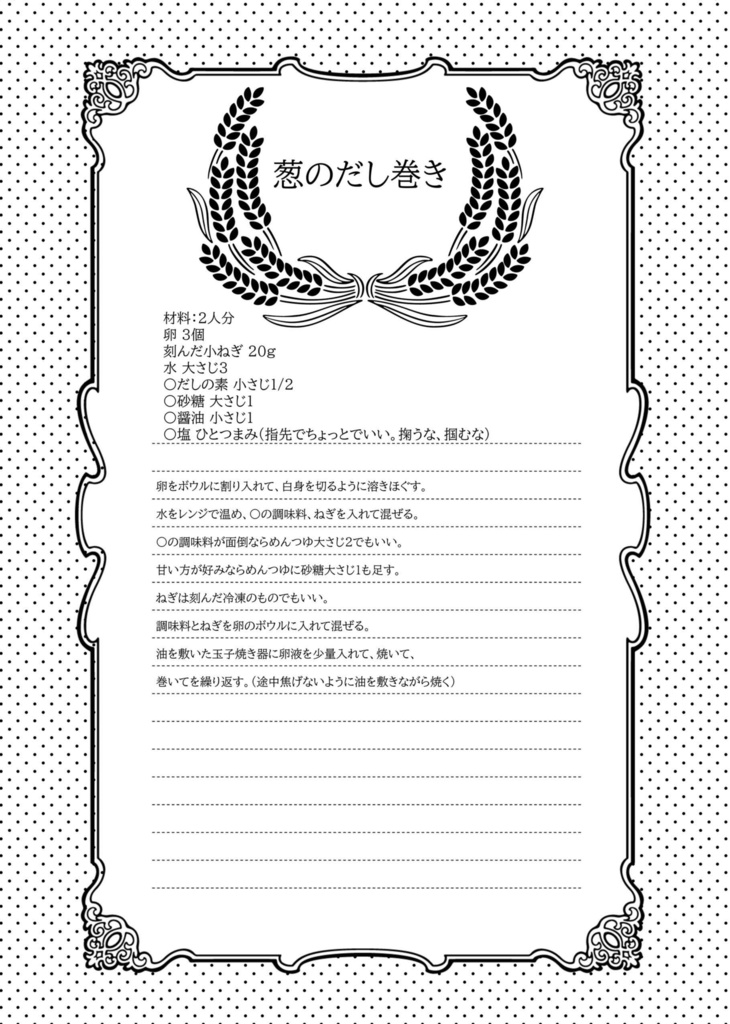 葱のだし巻き
材料：2人分
卵 3個
刻んだ小ねぎ 20g
水 大さじ3
○だしの素 小さじ1/2
○砂糖 大さじ1
○醤油 小さじ1
○塩 ひとつまみ（指先でちょっとでいい。掬うな、掴むな）
卵をボウルに割り入れて、白身を切るように溶きほぐす。
水をレンジで温め、○の調味料、ねぎを入れて混ぜる。
○の調味料が面倒ならめんつゆ大さじ2でもいい。
甘い方が好みならめんつゆに砂糖大さじ1も足す。
ねぎは刻んだ冷凍のものでもいい。
調味料とねぎを卵のボウルに入れて混ぜる。
油を敷いた玉子焼き器に卵液を少量入れて、焼いて、
巻いてを繰り返す。（途中焦げないように油を敷きながら焼く）